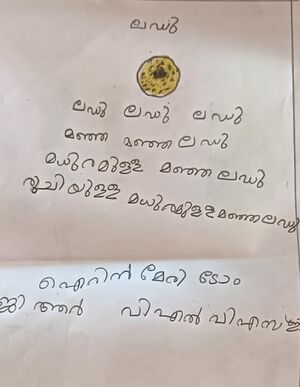 ലഡു
ലഡു ലഡു ലഡു
മഞ്ഞ മഞ്ഞ ലഡു
മധുരമുള്ള മഞ്ഞ ലഡു
രുചിയുള്ള മധുരമുള്ള മഞ്ഞ ലഡു
ഐറിൻ മേരി ടോം
ജി ആർ വി എൽ വി എസ്